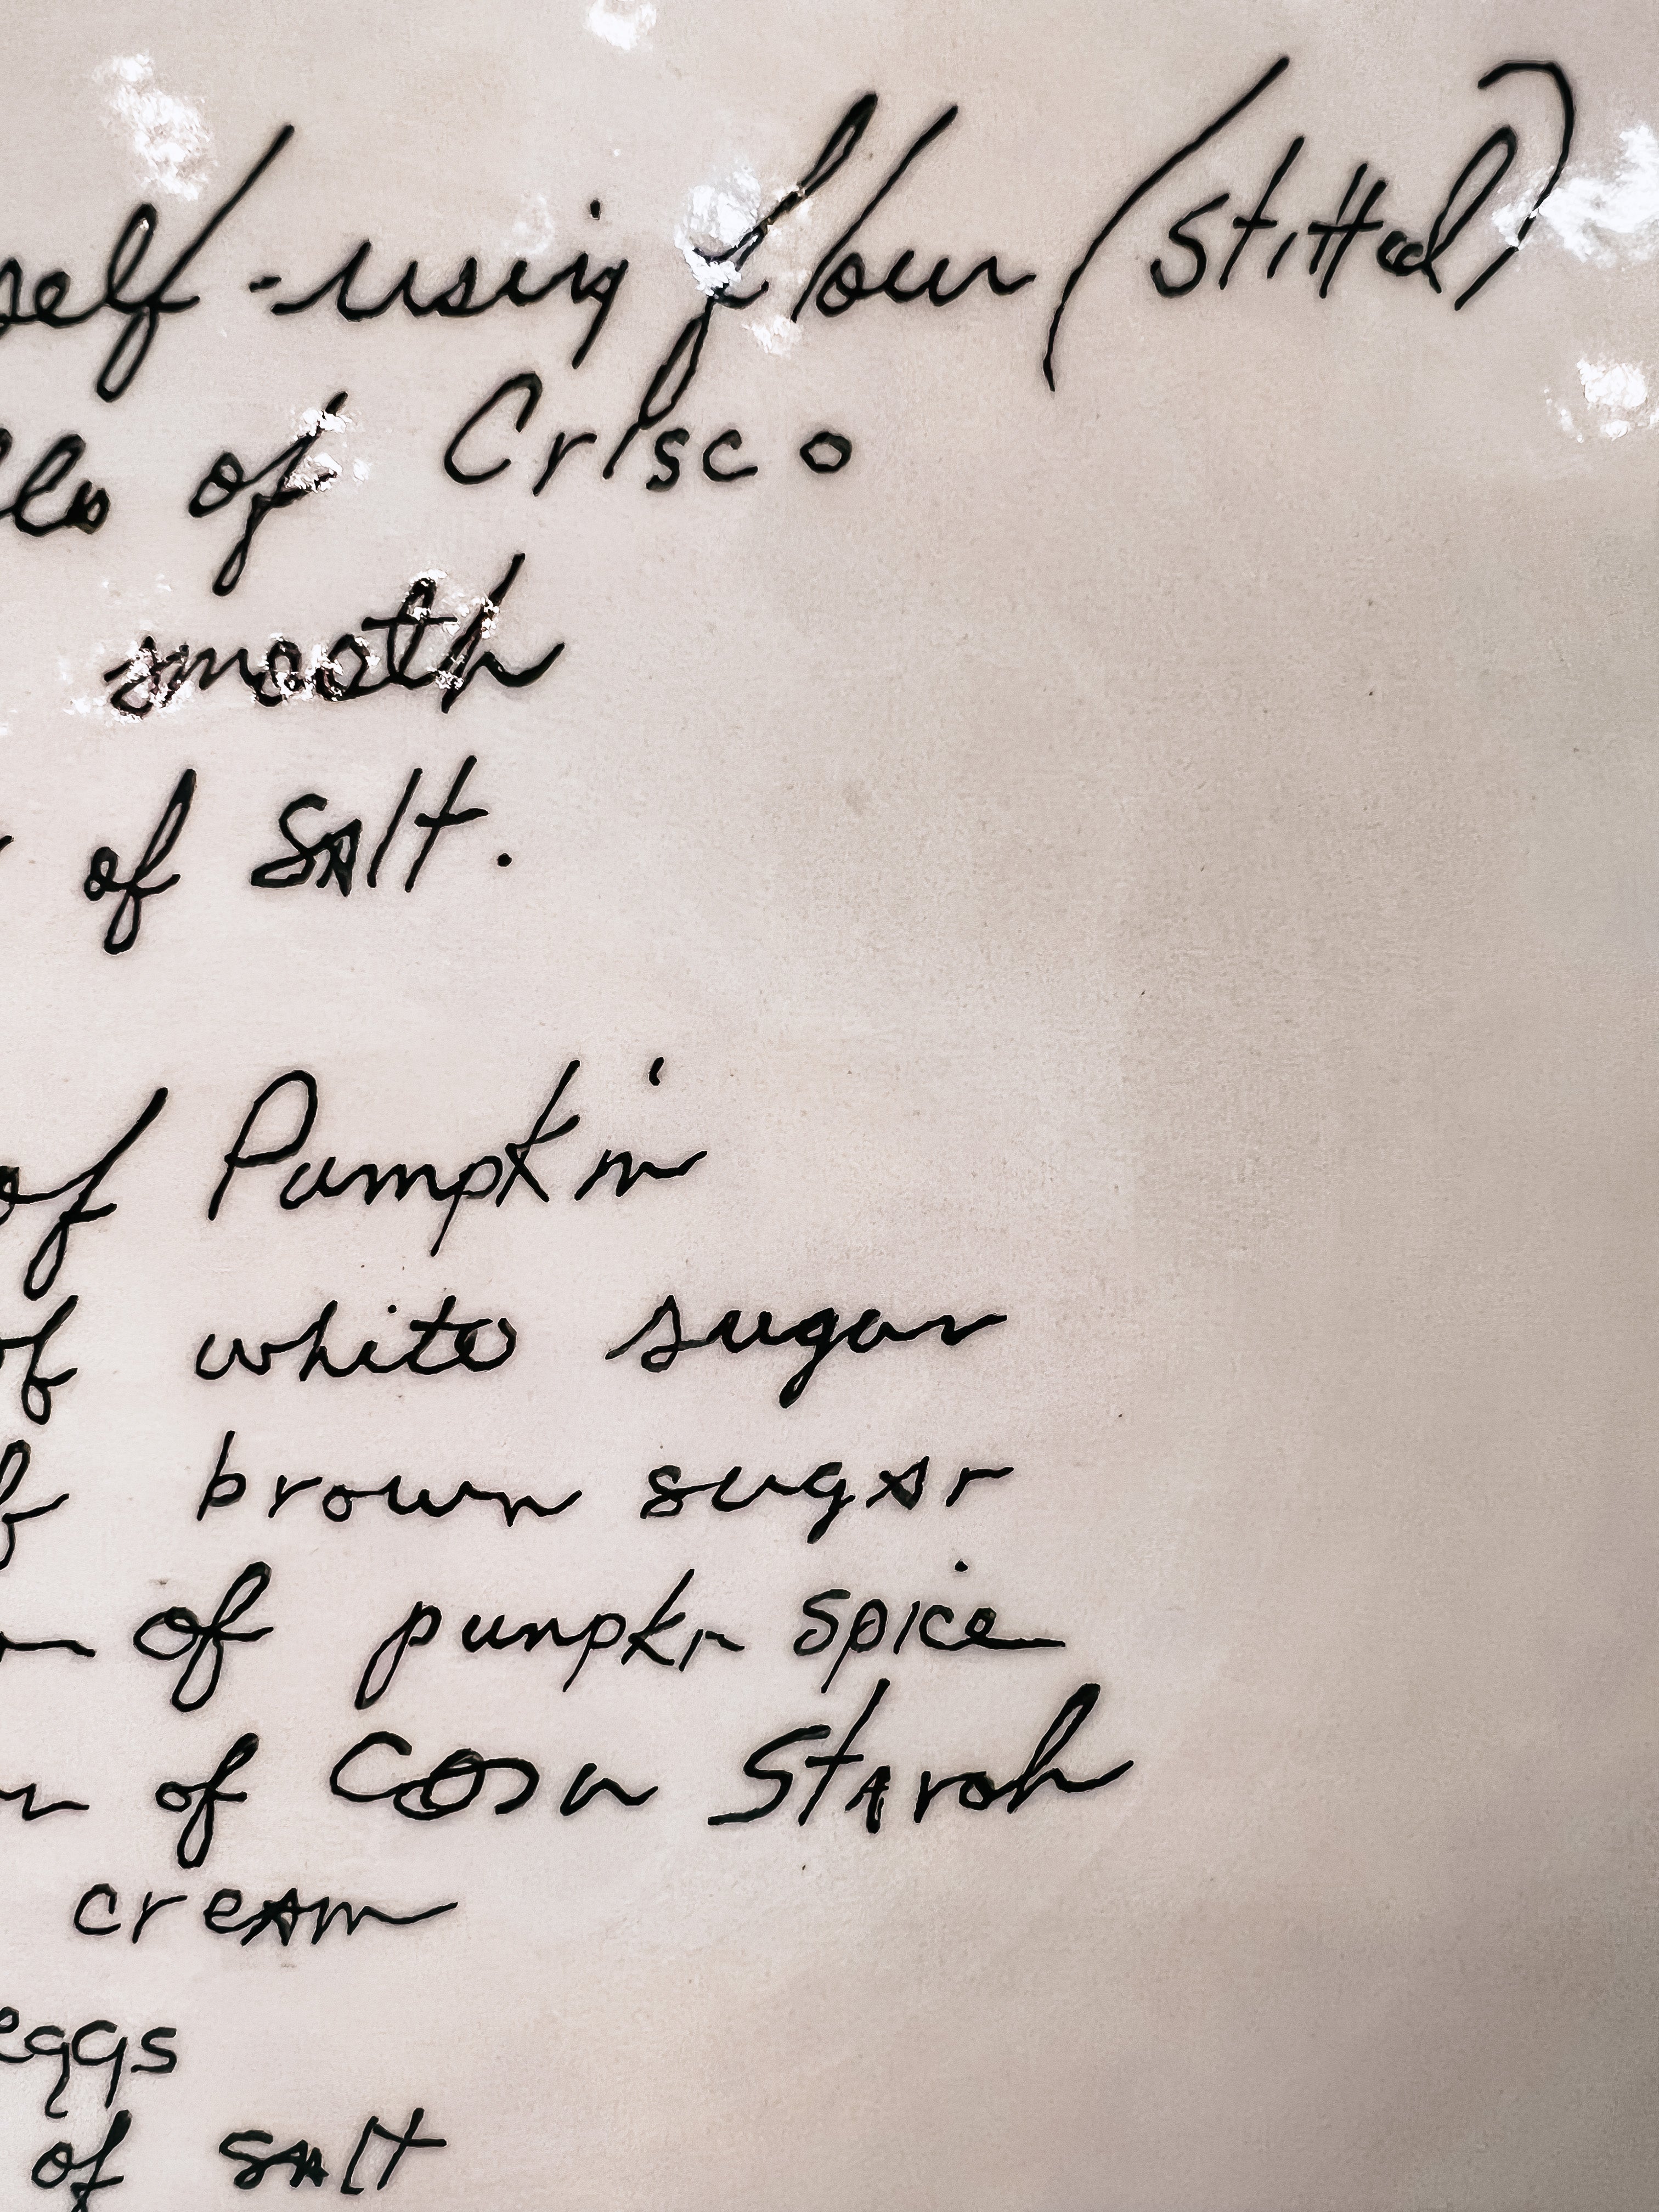 self-using flour (Stitted)
of Crisco
smooth
of SAlt.
of Pumpkin
of white sugar
brown sugar
of punpkn spice
of Corn STArch
cream
eggs
of SAlt